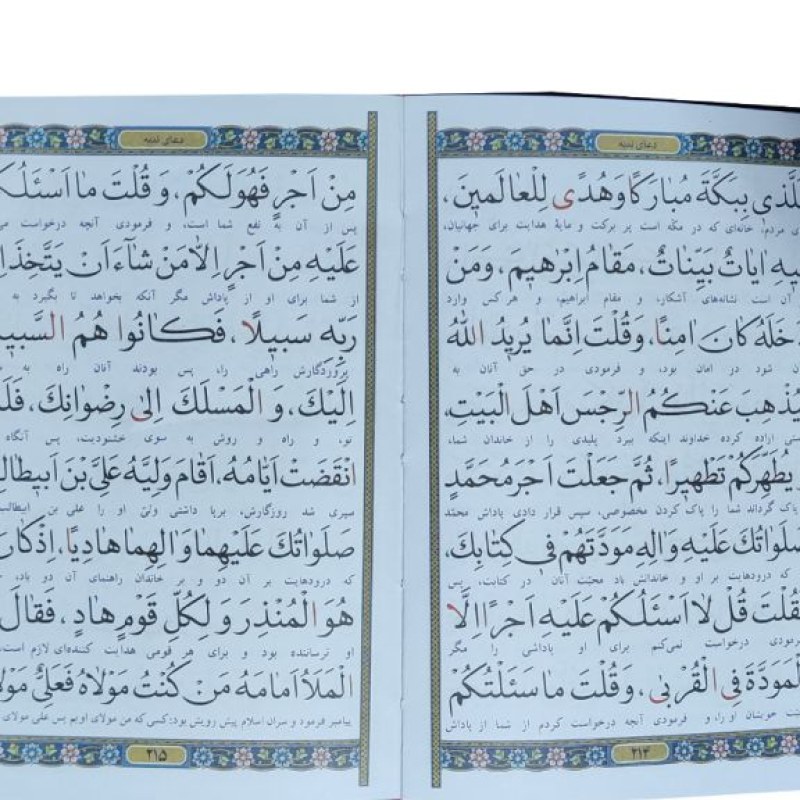 دعای ندبه
لَّذي بِبَكَّةَ مُبارَكًا وَهُدًى لِلْعالَمينَ،
ی مردم، خانه‌ای که در مکّه است پر برکت و مایهٔ هدایت برای جهانیان،
يهِ اياتٌ بَيِّناتٌ، مَقامُ اِبْرهيمَ، وَمَنْ
آن است نشانه‌های آشکار، و مقام ابراهیم، و هر کس وارد
دَخَلَهُ كانَ امِنًا، وَقُلْتَ اِنَّما يُريدُ اللهُ
ن شود در امان بود، و فرمودی در حق آنان به
يُذْهِبَ عَنْكُمُ الرِّجْسَ اَهْلَ الْبَيْتِ،
ستی اراده کرده خداوند اینکه ببرد پلیدی را از خاندان شما،
يُطَهِّرَكُمْ تَطْهيرًا، ثُمَّ جَعَلْتَ اَجْرَ مُحَمَّدٍ
پاک گرداند شما را پاک کردن مخصوصی، سپس قرار دادی پاداش محمّد
صَلَواتُكَ عَلَيْهِ وَالِهِ مَوَدَّتَهُمْ في كِتابِكَ،
که درودهایت بر او و خاندانش باد محبّت آنان در کتابت، پس
قُلْتَ قُلْ لا اَسْئَلُكُمْ عَلَيْهِ اَجْرًا اِلَّا
رمودی درخواست نمی‌کنم برای او پاداشی را مگر
لْمَوَدَّةَ فِي الْقُرْبى، وَقُلْتَ ما سَئَلْتُكُمْ
خویشان او را، و فرمودی آنچه درخواست کردم از شما از پاداش
۲۱۴
دعای ندبه
مِنْ اَجْرٍ فَهُوَ لَكُمْ، وَ قُلْتَ ما اَسْئَلُكُ
پس از آن به نفع شما است، و فرمودی آنچه درخواست می
عَلَيْهِ مِنْ اَجْرٍ اِلّا مَنْ شاءَ اَنْ يَتَّخِذَ اِ
از شما برای او از پاداش مگر آنکه بخواهد تا بگیرد به
رَبِّه سَبيلًا، فَكانُوا هُمُ السَّبيـ
پروردگارش راهی را، پس بودند آنان راه به
اِلَيْكَ، وَ الْمَسْلَكَ اِلى رِضْوانِكَ، فَلَـ
تو، و راه و روش به سوی خشنودیت، پس آنگاه
انْقَضَتْ اَيّامُهُ، اَقامَ وَلِيَّهُ عَلِيَّ بْنَ اَبيطالِ
سپری شد روزگارش، برپا داشتی ولیّ او را علی بن ابیطالب
صَلَواتُكَ عَلَيْهِما وَالِهِما هادِيًا، اِذْ كانَ
که درودهایت بر آن دو و بر خاندان راهنمای آن دو باد،
هُوَ الْمُنْذِرَ وَ لِكُلِّ قَوْمٍ هادٍ، فَقالَ
او ترساننده بود و برای هر قومی هدایت کننده‌ای لازم است،
الْمَلَأُ اَمامَهُ مَنْ كُنْتُ مَوْلاهُ فَعَلِيٌّ مَوْلا
پیامبر فرمود و سران اسلام پیش رویش بود: کسی که من مولای اویم پس علی مولای
۲۱۵